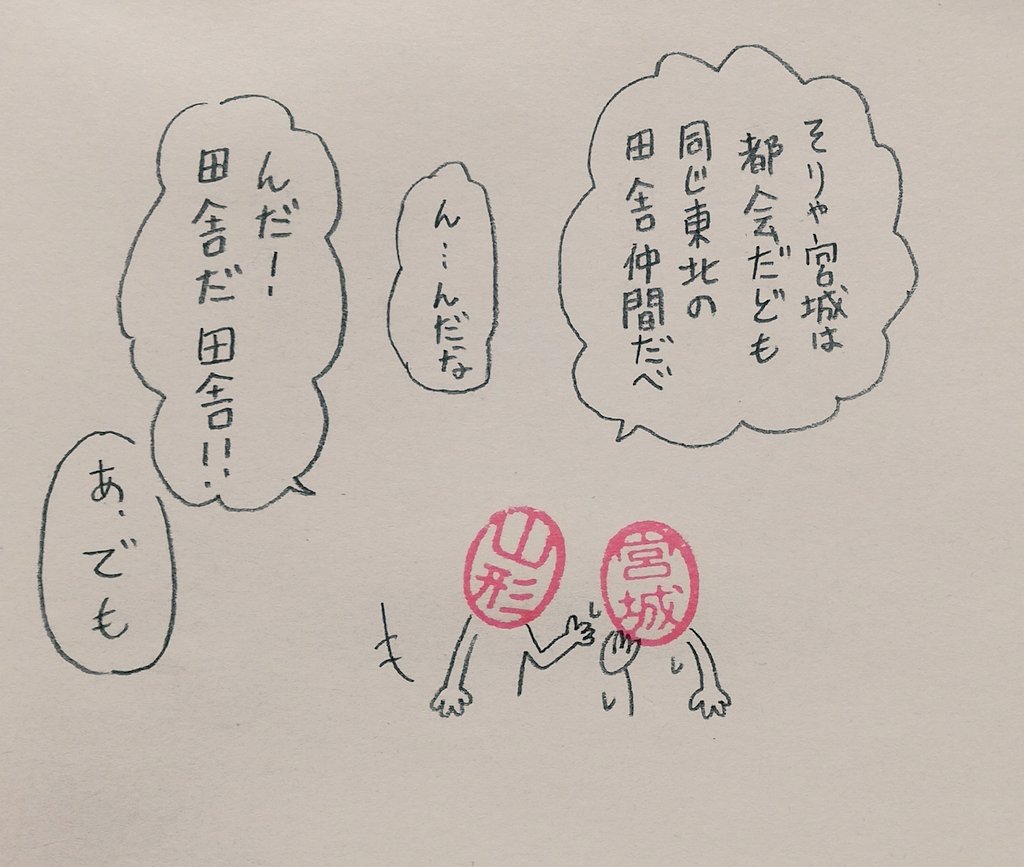 そりゃ宮城は
都会だども
同じ東北の
田舎仲間だべ
ん…んだな
んだー
田舎だ田舎!!
あ、でも
山形
宮城